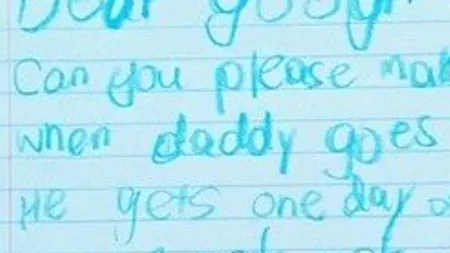 Dear goog
Can you please mak
when daddy goes
He gets one day o